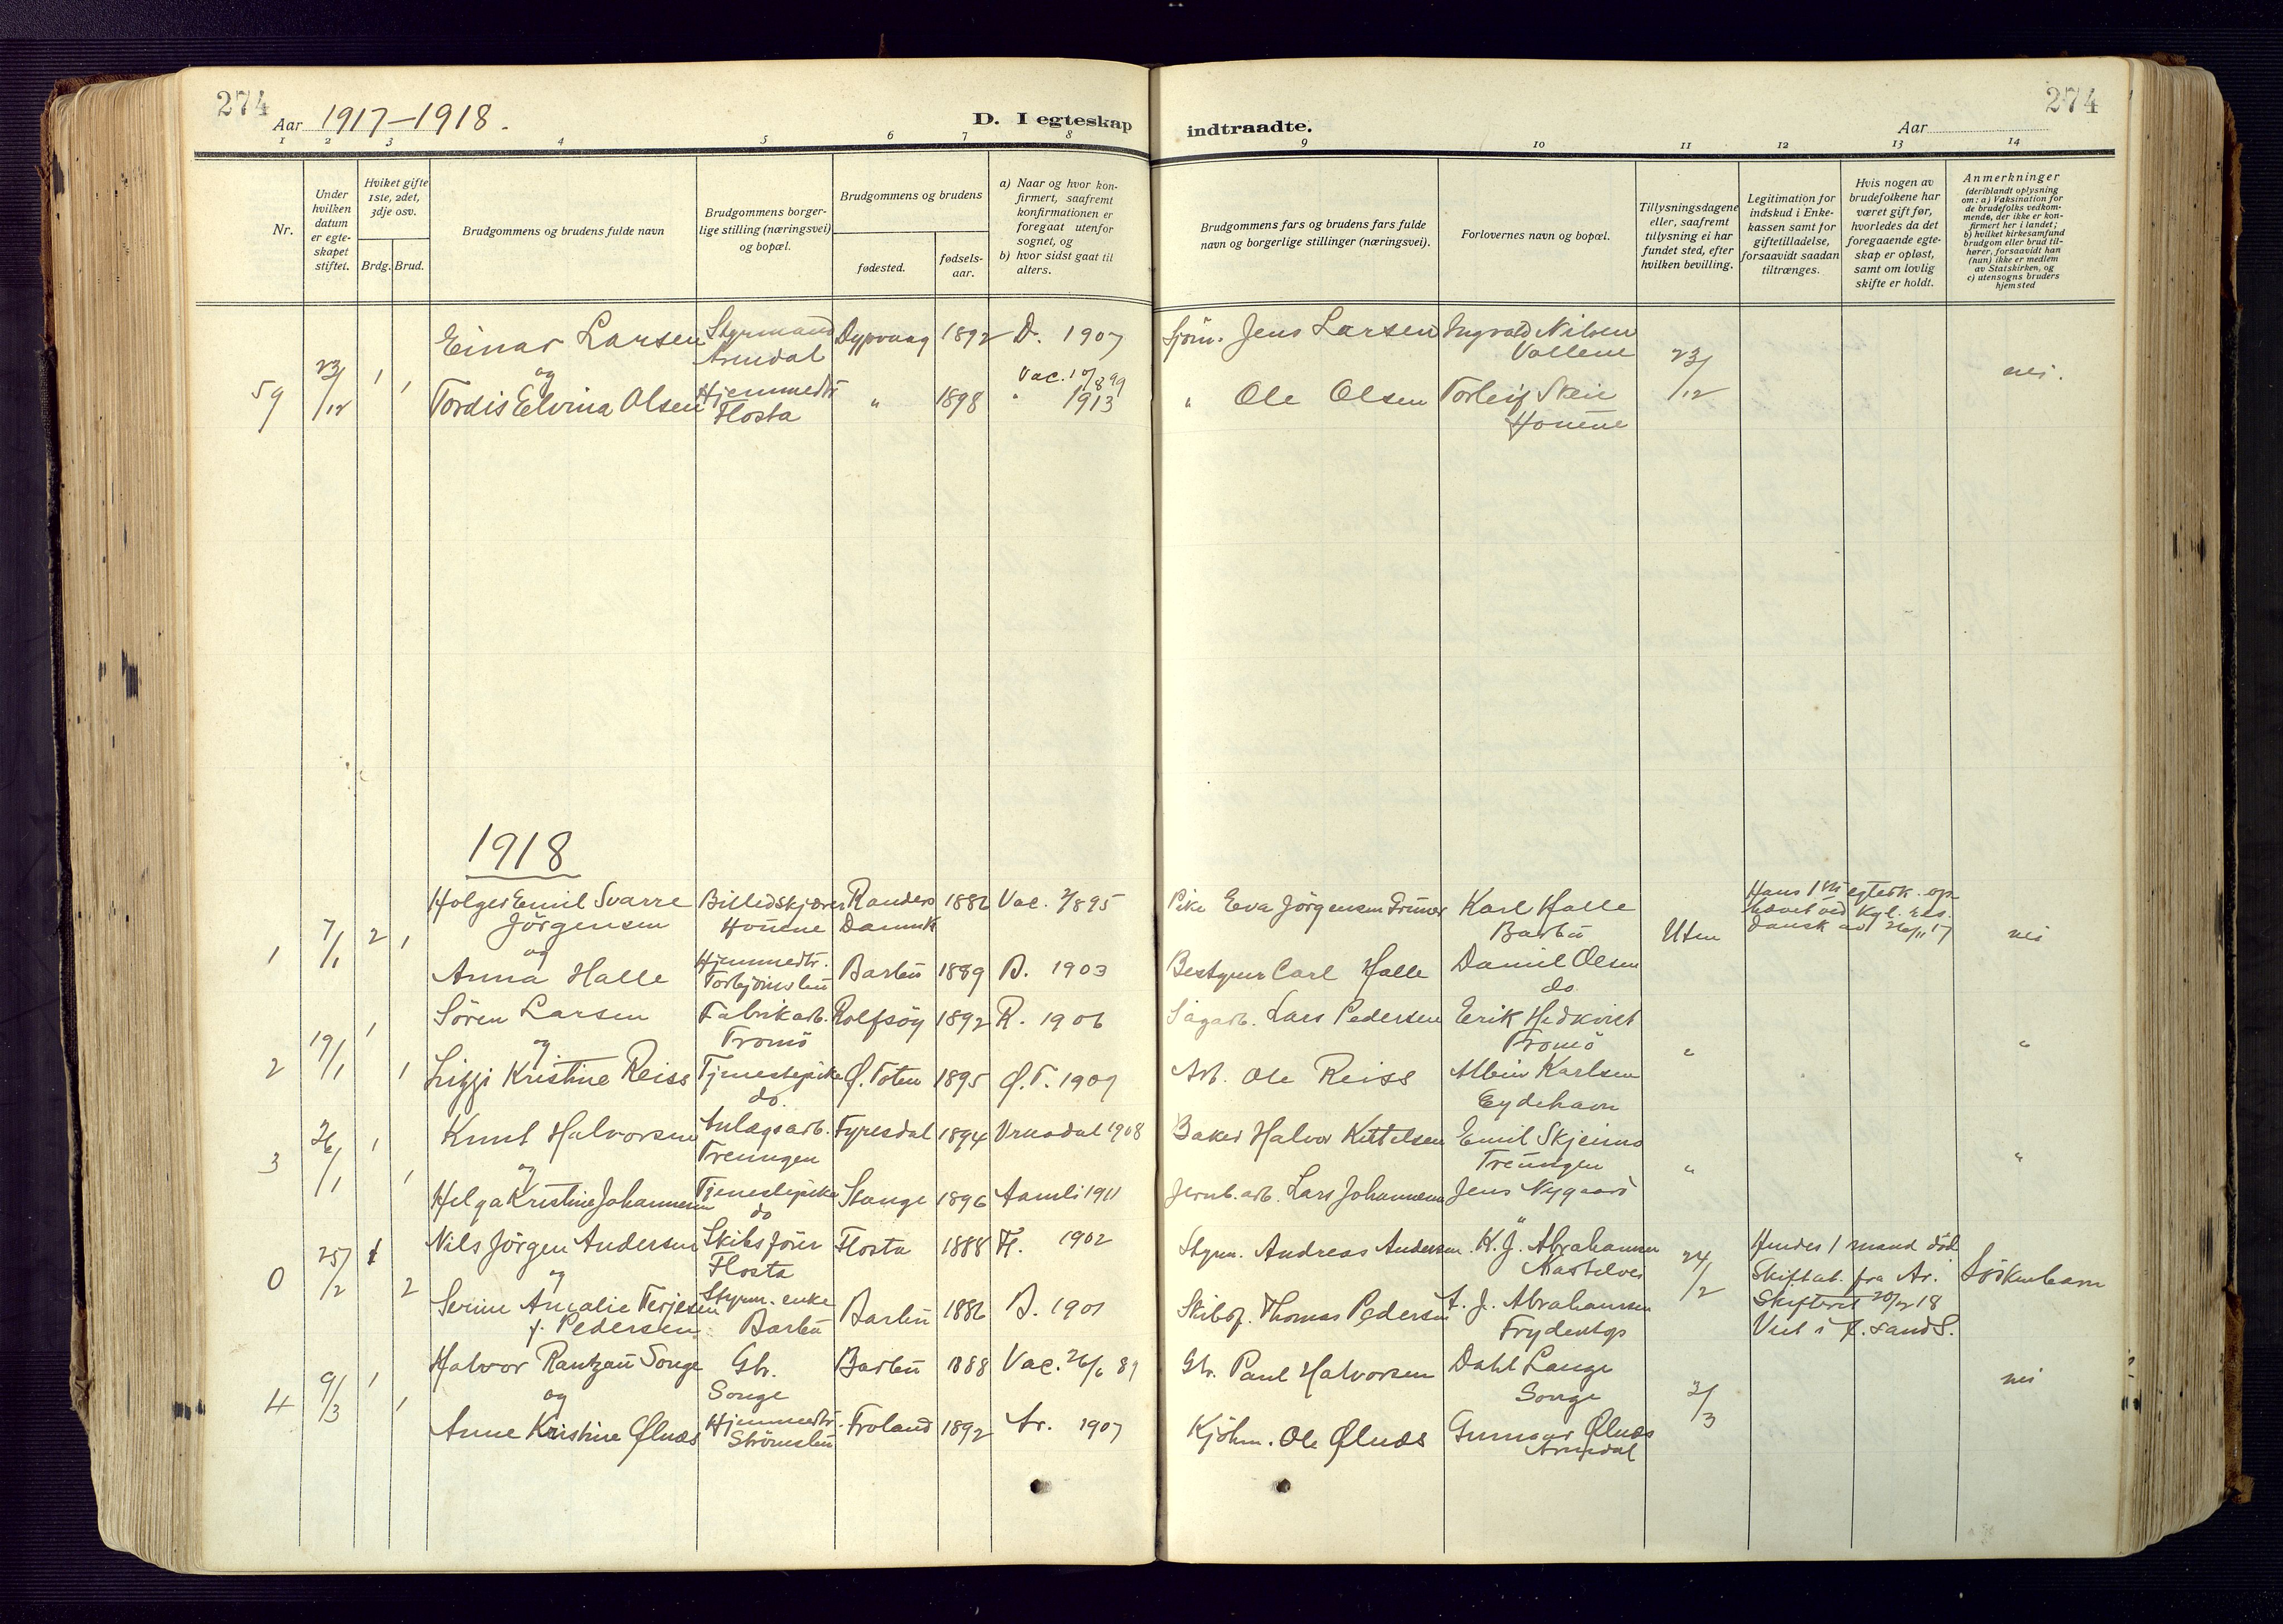 274
Aar 1917-1918.
D. I egteskap
1 2 3 4 5 6 7 8
Nr.
Under hvilken datum er egteskapet stiftet.
Hviket gifte 1ste, 2det, 3dje osv.
Brdg. Brud.
Brudgommens og brudens fulde navn
Brudgommens borgerlige stilling (næringsvei) og bopæl.
Brudgommens og brudens
fødested.
fødselsaar.
a) Naar og hvor konfirmert, saafremt konfirmationen er foregaat utenfor sognet, og
b) hvor sidst gaat til alters.
indtraadte.
Aar
274
9 10 11 12 13 14
Brudgommens fars og brudens fars fulde navn og borgerlige stillinger (næringsvei).
Forlovernes navn og bopæl.
Tillysningsdagene eller, saafremt tillysning ei har fundet sted, efter hvilken bevilling.
Legitimation for indskud i Enkekassen samt for giftetilladelse, forsaavidt saadan tiltrænges.
Hvis nogen av brudefolkene har været gift før, hvorledes da det foregaaende egteskap er opløst, samt om lovlig skifte er holdt.
Anmerkninger
(deriblandt oplysning om: a) Vaksination for de brudefolks vedkommende, der ikke er konfirmert her i landet;
b) hvilket kirkesamfund brudgom eller brud tilhører, forsaavidt han (hun) ikke er medlem av Statskirken, og
c) utensogns bruders hjemsted
59 23/12 1 1
Einar Larsen Styrmand Arendal Dypvaag 1892 D. 1907 Sjöm. Jens Larsen Ingvald Nilsen Vollene 23/12 nei.
og
Tordis Elvina Olsen Hjemmedtr Flosta " 1898 Vac. 8 99 " 1913 " Ole Olsen Torleif Houene
1918
1 7/1 2 1
Holger Emil Svarre Jörgensen Billedskjærer Houene Randers Danmk 1886 Vac. 895 Pike Eva Jörgensen Karl Halle Barbu Uten Hans 1ste egtesk. ophævet ved Kgl. res. dansk av 26/11 17 nei
og
Anna Halle Hjemmedtr. Barbu 1889 B. 1903 Bestyrer Carl Halle Daniel Olsen do.
2 19/1 1 1
Sören Larsen Fabrikarb. Tromö Rolfsöy 1892 R. 1906 Sagarb. Lars Pedersen Erik Hedkvist Tromö " "
og
Kristine Reiss Tjenestepike do. Ø. Toten 1895 Ø.T. 1909 Arb. Ole Reiss Albin Karlsen Eydehavn
3 26/1 1 1
Knut Halvorsen Anlægsarb. Treungen Fyresdal 1894 Vraadal 1908 Baker Halvor Kittelsen Emil Treungen " "
og
Helga Kristine Johannesen Tjenestepike do Stange 1896 Aamli 1911 Jernb.arb. Lars Johannesen Jens Nygaard "
0 25/2 1 2
Nils Jörgen Andersen Skibsförer Flosta Flosta 1888 Fl. 1902 Styrm. Andreas Andersen K. J. Abrahamsen 24/2 Hendes 1 mand död Skifteat. fra Ar. Skifteret 20/2 18 Viet i
og
Serine Amalie Terjesen f. Pedersen Styrm. enke Barbu Barbu 1886 B. 1901 Skibsf. Thomas Pedersen J. Abrahamsen
4 9/3 1 1
Halvor Rantzau Songe Gbr. Songe Barbu 1888 Vac. 26/6 89 Gbr. Paul Halvorsen Dahl Lange Songe 3/3 nei
og
Anne Kristine Ølnæs Hjemmedtr. Strömsbu Froland 1892 Ar. 1907 Kjöbm. Ole Ølnæs Gunnar Ølnæs Arendal